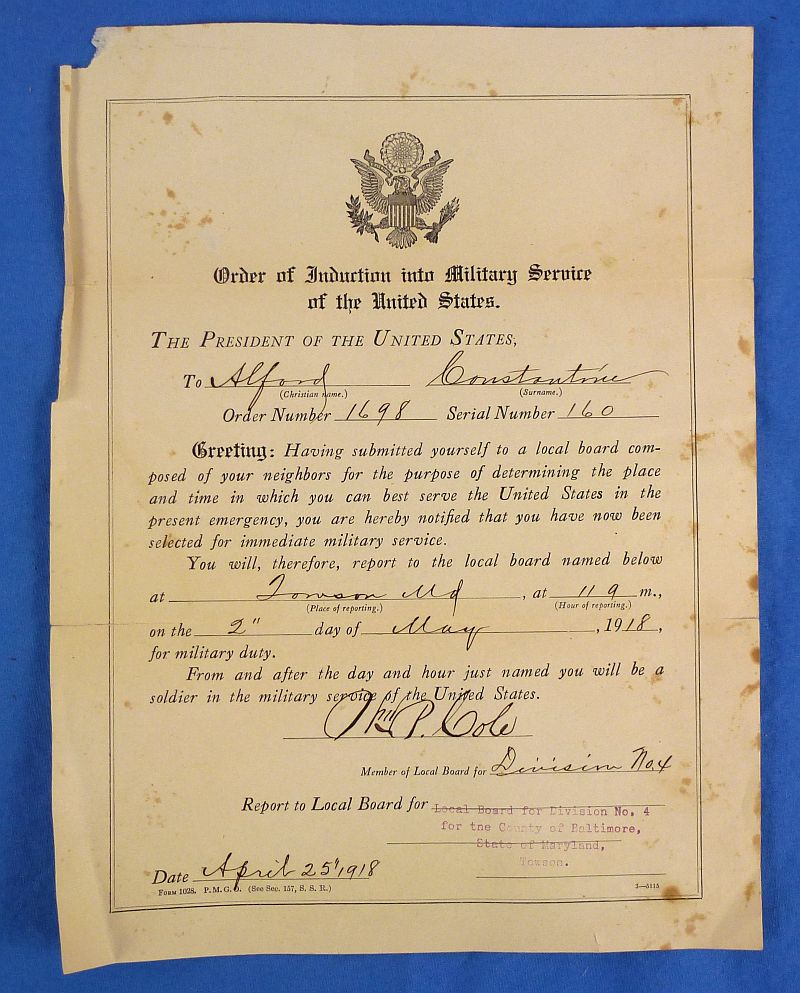 Order of Induction into Military Service
of the United States.
THE PRESIDENT OF THE UNITED STATES,
To Alford Constantine
(Christian name.) (Surname.)
Order Number 1698 Serial Number 160
Greeting: Having submitted yourself to a local board com-
posed of your neighbors for the purpose of determining the place
and time in which you can best serve the United States in the
present emergency, you are hereby notified that you have now been
selected for immediate military service.
You will, therefore, report to the local board named below
at Towson Md, at 11 a m.,
(Place of reporting.) (Hour of reporting.)
on the 2" day of May, 1918,
for military duty.
From and after the day and hour just named you will be a
soldier in the military service of the United States.
Wm P. Cole
Member of Local Board for Division No. 4
Report to Local Board for Local Board for Division No. 4
for tne County of Baltimore,
State of Maryland,
Towson.
Date April 25" 1918
FORM 1028. P. M. G. O. (See Sec. 157, S. S. R.) 3—5115